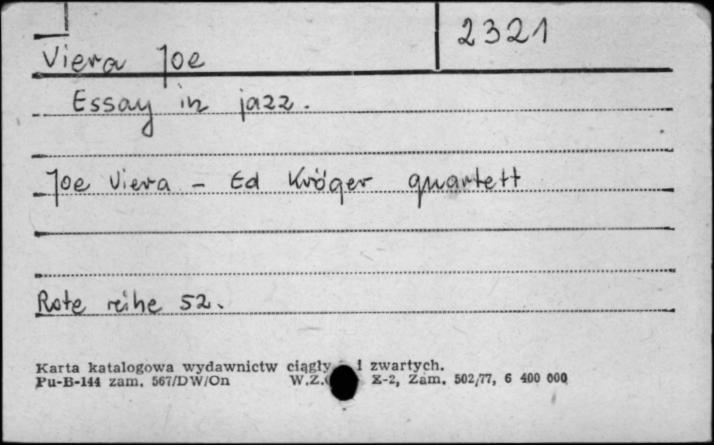 2321
Viera Joe
Essay in jazz.
Joe Viera - Ed Kröger quartett
Rote reihe 52.
Karta katalogowa wydawnictw ciągły i zwartych.
Pu-B-144 zam. 567/DW/On W.Z. X-2, Zam. 502/77, 6 400 000